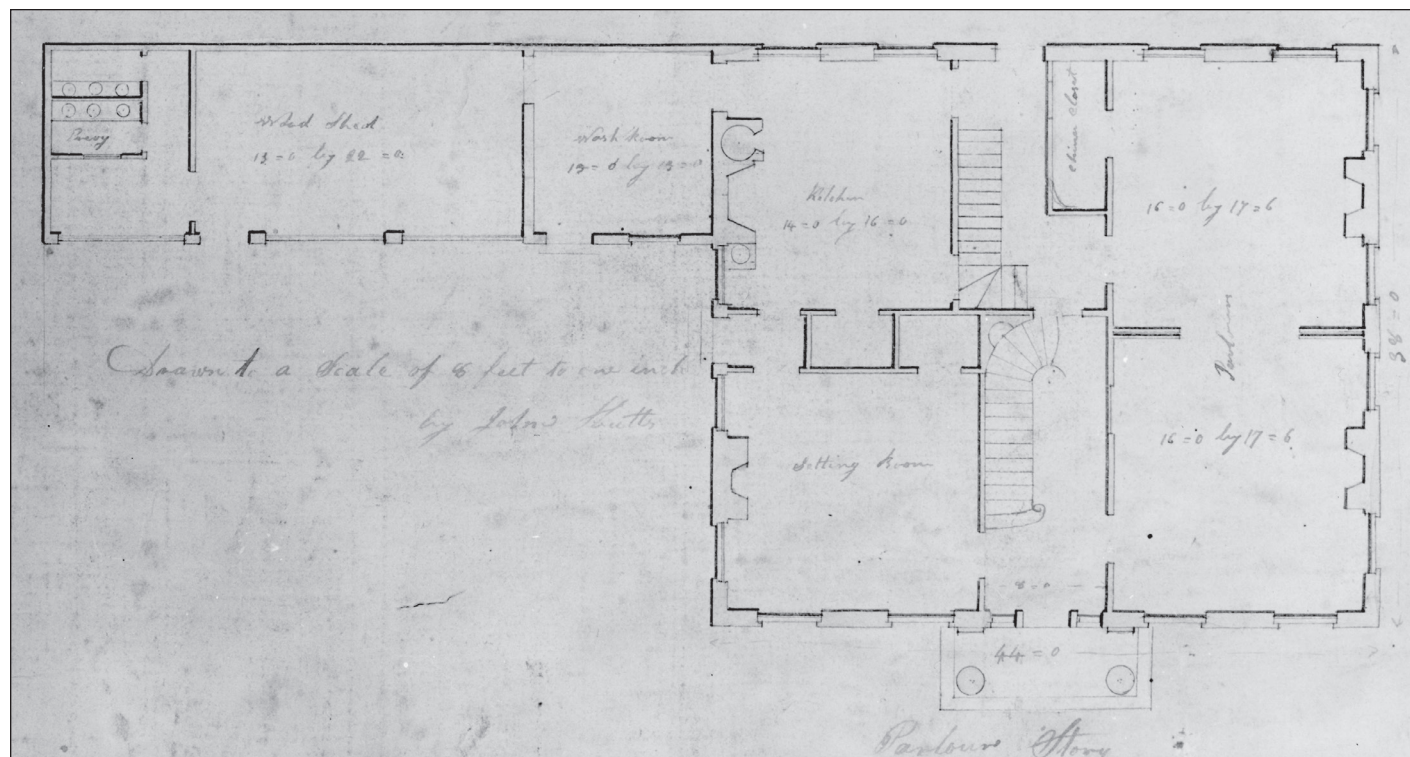 Privy
Wood Shed
13=0 by 22=0
Wash Room
13=0 by 13=0
Kitchen
14=0 by 16=0
China Closet
16=0 by 17=6
Parlours
38=0
16=0 by 17=6
Drawn to a Scale of 8 feet to one inch
by John Kutts
Sitting Room
8=0
44=0
Parlour Story